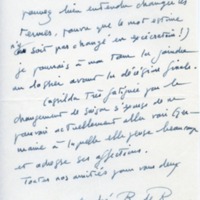 pouvez bien entendu changer les
termes, pourvu que le mot estime
n'y soit pas changé en exécration !)
je pourrais à mon tour la joindre
au dossier avant la décision finale.
Casilda très fatiguée par le
changement de saison s'excuse de ne
pouvoir actuellement aller voir Ger-
maine à laquelle elle pense beaucoup
et adresse ses affections.
Toutes nos amitiés pour vous deux
R de R